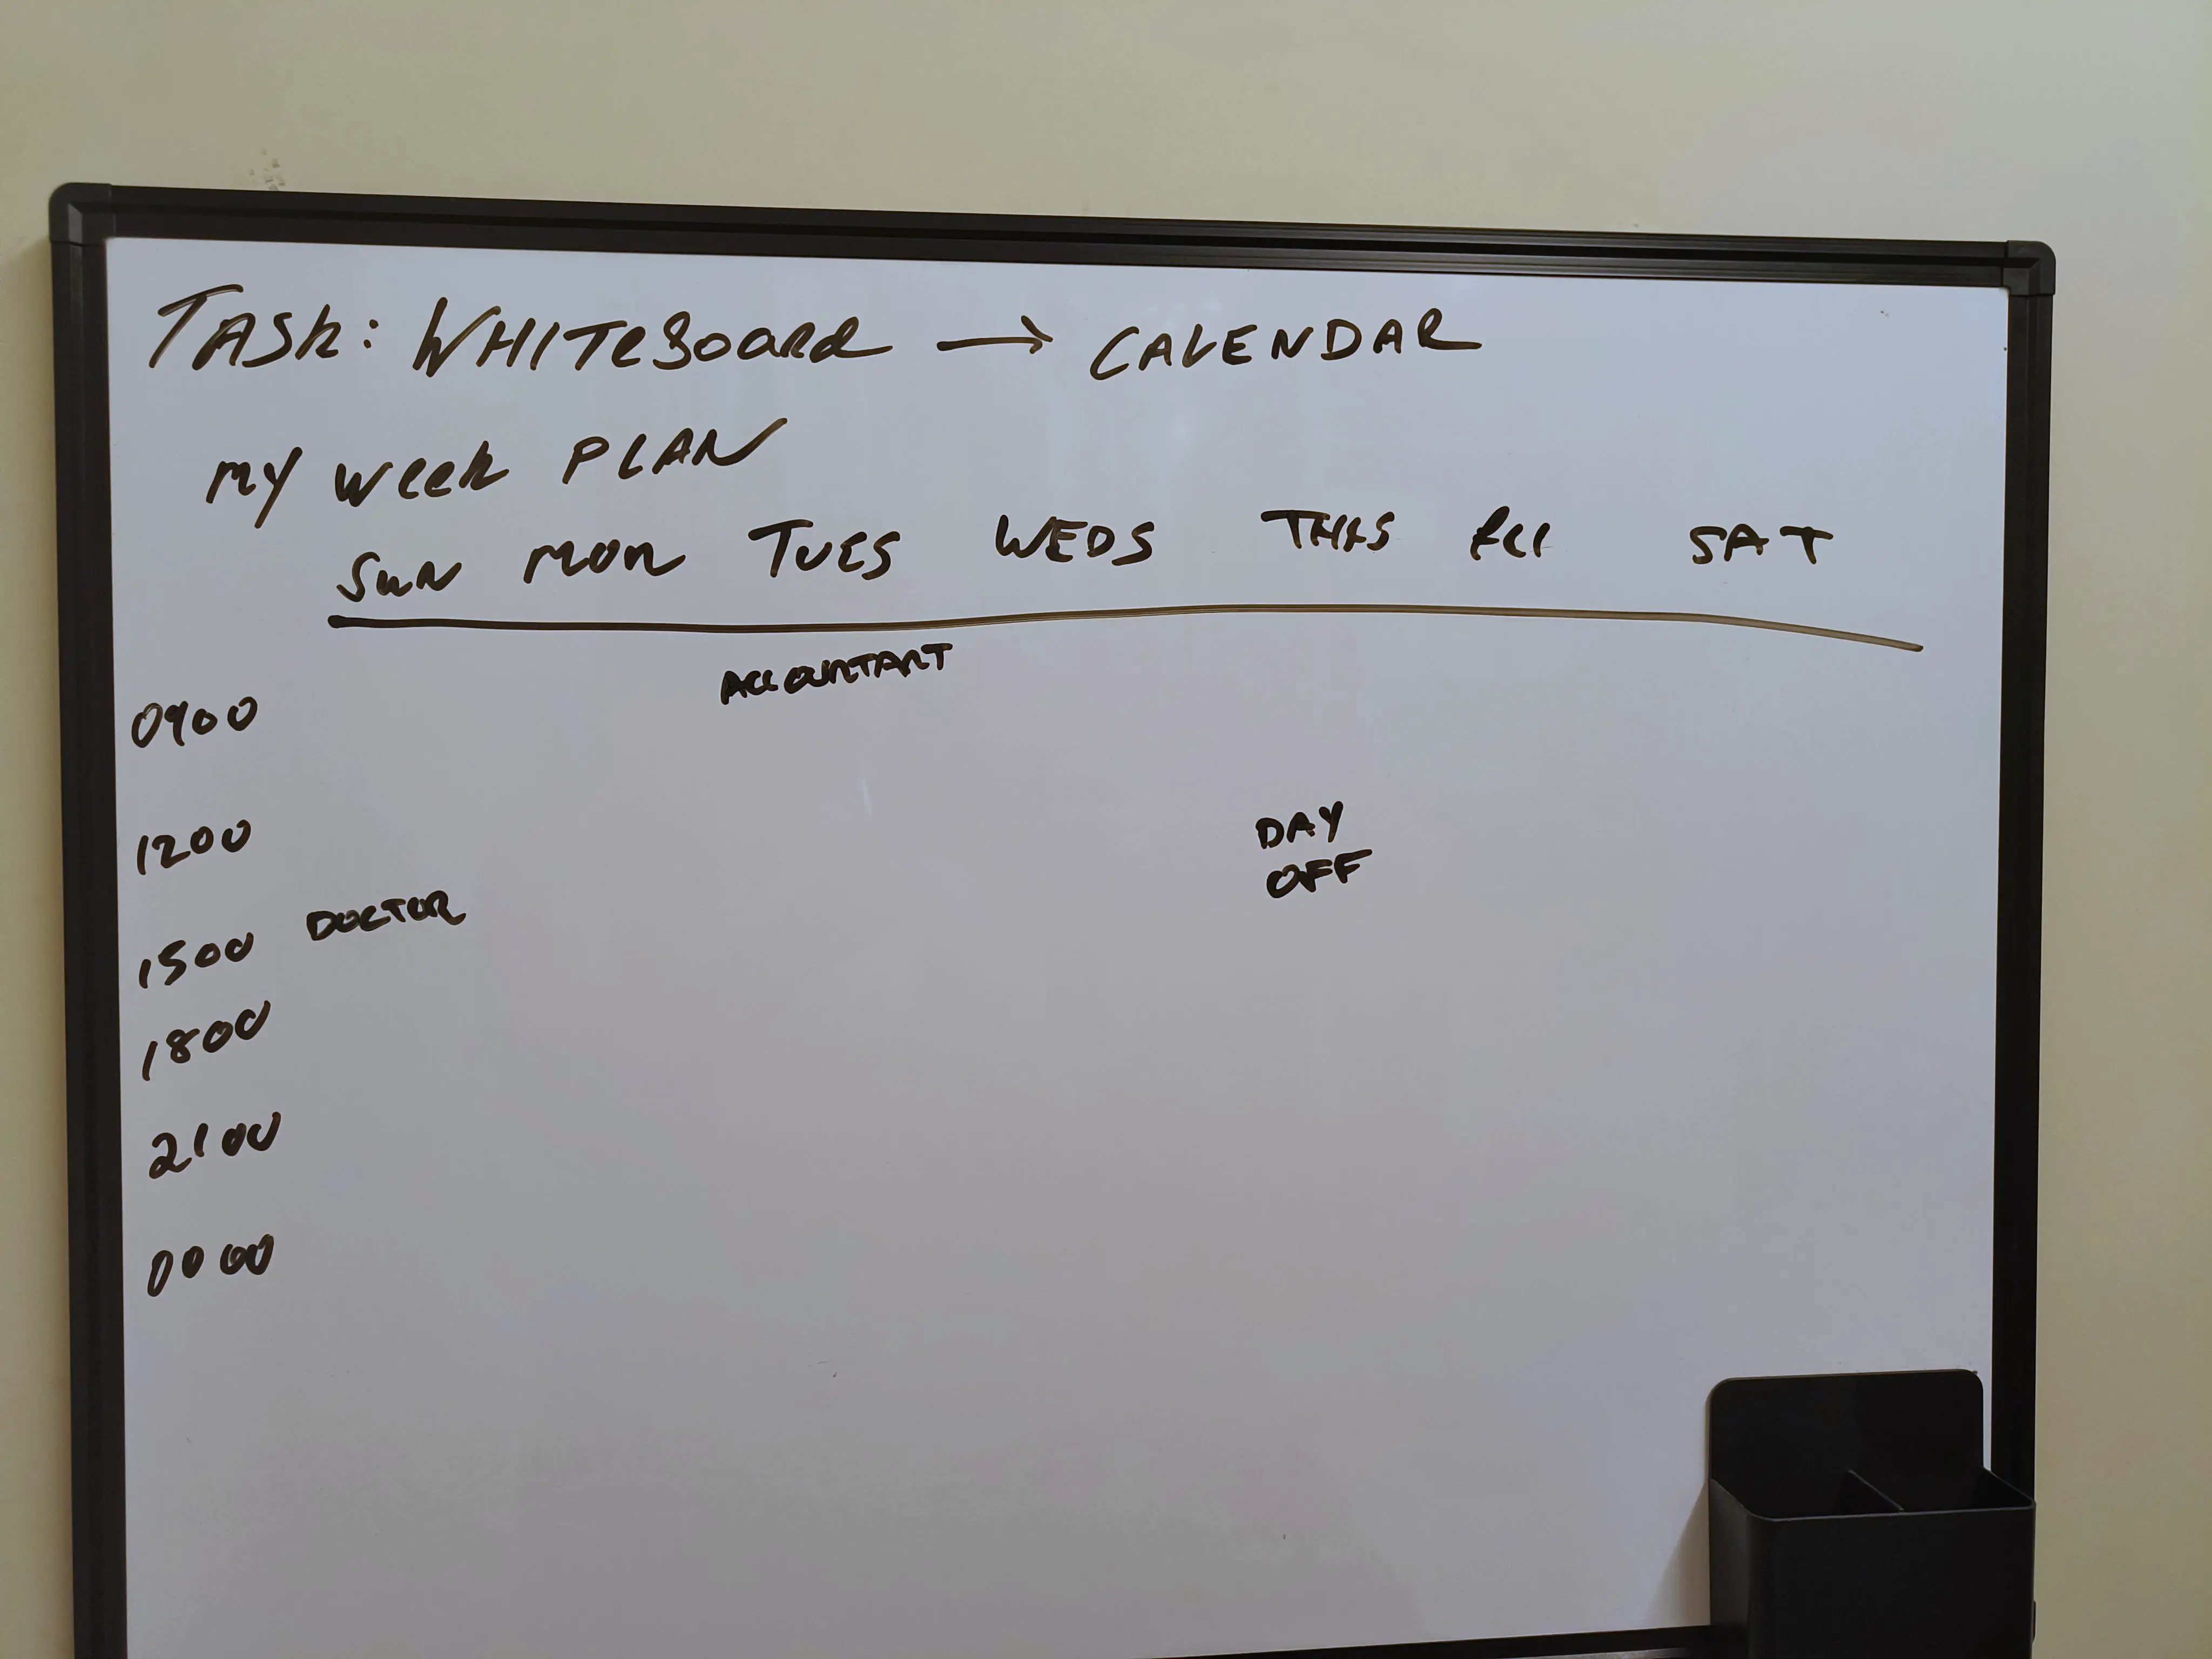 TASK: WHITEBOARD → CALENDAR
MY WEEK PLAN
SUN MON TUES WEDS THRS FRI SAT
ACCOUNTANT
0900
1200 DAY
OFF
1500 DOCTOR
1800
2100
0000